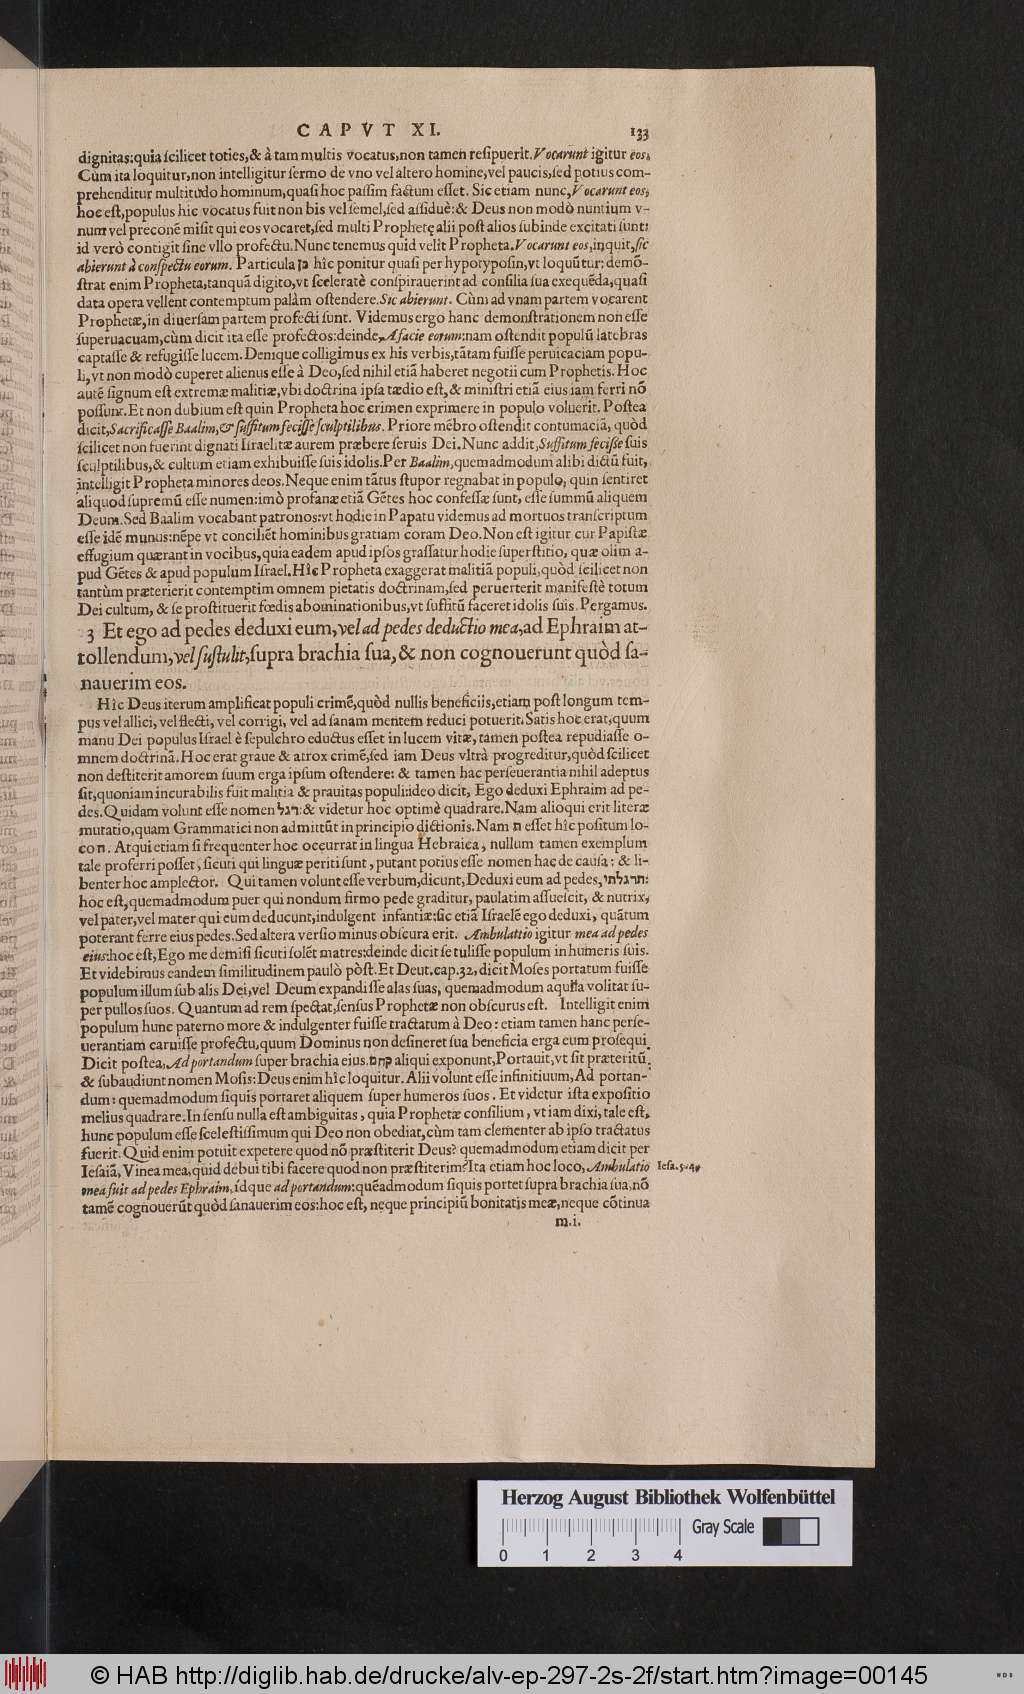 CAPVT XI. 133
dignitas: quia ſcilicet toties, & à tam multis vocatus, non tamen reſipuerit. Vocarunt igitur eos.
Cùm ita loquitur, non intelligitur ſermo de vno vel altero homine, vel paucis, ſed potius com-
prehenditur multitudo hominum, quaſi hoc paſſim factum eſſet. Sic etiam nunc, Vocarunt eos,
hoc eſt, populus hic vocatus fuit non bis vel ſemel, ſed aſſiduè: & Deus non modò nuntium v-
num vel preconē miſit qui eos vocaret, ſed multi Prophetę alii poſt alios ſubinde excitati ſunt:
id verò contigit ſine vllo profectu. Nunc tenemus quid velit Propheta. Vocarunt eos, inquit, ſic
abierunt à conſpectu eorum. Particula כן hîc ponitur quaſi per hypotypoſin, vt loquūtur: demō-
ſtrat enim Propheta, tanquā digito, vt ſceleratè conſpirauerint ad conſilia ſua exequēda, quaſi
data opera vellent contemptum palàm oſtendere. Sic abierunt. Cùm ad vnam partem vocarent
Prophetæ, in diuerſam partem profecti ſunt. Videmus ergo hanc demonſtrationem non eſſe
ſuperuacuam, cùm dicit ita eſſe profectos: deinde, A facie eorum: nam oſtendit populū latebras
captaſſe & refugiſſe lucem. Denique colligimus ex his verbis, tātam fuiſſe peruicaciam popu-
li, vt non modò cuperet alienus eſſe à Deo, ſed nihil etiā haberet negotii cum Prophetis. Hoc
autē ſignum eſt extremæ malitiæ, vbi doctrina ipſa tædio eſt, & miniſtri etiā eius iam ferri nō
poſſunt. Et non dubium eſt quin Propheta hoc crimen exprimere in populo voluerit. Poſtea
dicit, Sacrificaſſe Baalim, & ſuffitum feciſſe ſculptilibus. Priore mēbro oſtendit contumacia, quòd
ſcilicet non fuerint dignati Iſraelitæ aurem præbere ſeruis Dei. Nunc addit, Suffitum feciſſe ſuis
ſculptilibus, & cultum etiam exhibuiſſe ſuis idolis. Per Baalim, quemadmodum alibi dictū fuit,
intelligit Propheta minores deos. Neque enim tātus ſtupor regnabat in populo, quin ſentiret
aliquod ſupremū eſſe numen: imò profanæ etiā Gētes hoc confeſſæ ſunt, eſſe ſummū aliquem
Deum. Sed Baalim vocabant patronos: vt hodie in Papatu videmus ad mortuos tranſcriptum
eſſe idē munus: nēpe vt conciliēt hominibus gratiam coram Deo. Non eſt igitur cur Papiſtæ
effugium quærant in vocibus, quia eadem apud ipſos graſſatur hodie ſuperſtitio, quæ olim a-
pud Gētes & apud populum Iſrael. Hîc Propheta exaggerat malitiā populi, quòd ſcilicet non
tantùm præterierit contemptim omnem pietatis doctrinam, ſed peruerterit manifeſtè totum
Dei cultum, & ſe proſtituerit fœdis abominationibus, vt ſuffitū faceret idolis ſuis. Pergamus.
3 Et ego ad pedes deduxi eum, vel ad pedes deductio mea, ad Ephraim at-
tollendum, vel ſuſtulit, ſupra brachia ſua, & non cognouerunt quòd ſa-
nauerim eos.
Hîc Deus iterum amplificat populi crimē, quòd nullis beneficiis, etiam poſt longum tem-
pus vel allici, vel flecti, vel corrigi, vel ad ſanam mentem reduci potuerit. Satis hoc erat, quum
manu Dei populus Iſrael è ſepulchro eductus eſſet in lucem vitæ, tamen poſtea repudiaſſe o-
mnem doctrinā. Hoc erat graue & atrox crimē, ſed iam Deus vltrà progreditur, quòd ſcilicet
non deſtiterit amorem ſuum erga ipſum oſtendere: & tamen hac perſeuerantia nihil adeptus
ſit, quoniam incurabilis fuit malitia & prauitas populi: ideo dicit, Ego deduxi Ephraim ad pe-
des. Quidam volunt eſſe nomen רגל: & videtur hoc optimè quadrare. Nam alioqui erit literæ
mutatio, quam Grammatici non admittūt in principio dictionis. Nam ת eſſet hîc poſitum lo-
co ה. Atqui etiam ſi frequenter hoc occurrat in lingua Hebraica, nullum tamen exemplum
tale proferri poſſet, ſicuti qui linguæ periti ſunt, putant potius eſſe nomen hac de cauſa: & li-
benter hoc amplector. Qui tamen volunt eſſe verbum, dicunt, Deduxi eum ad pedes, תרגלתי:
hoc eſt, quemadmodum puer qui nondum firmo pede graditur, paulatim aſſueſcit, & nutrix,
vel pater, vel mater qui eum deducunt, indulgent infantiæ: ſic etiā Iſraelē ego deduxi, quātum
poterant ferre eius pedes. Sed altera verſio minus obſcura erit. Ambulattio igitur mea ad pedes
eius: hoc eſt, Ego me demiſi ſicuti ſolēt matres: deinde dicit ſe tuliſſe populum in humeris ſuis.
Et videbimus eandem ſimilitudinem paulò pòſt. Et Deut. cap. 32, dicit Moſes portatum fuiſſe
populum illum ſub alis Dei, vel Deum expandiſſe alas ſuas, quemadmodum aquila volitat ſu-
per pullos ſuos. Quantum ad rem ſpectat, ſenſus Prophetæ non obſcurus eſt. Intelligit enim
populum hunc paterno more & indulgenter fuiſſe tractatum à Deo: etiam tamen hanc perſe-
uerantiam caruiſſe profectu, quum Dominus non deſineret ſua beneficia erga eum proſequi.
Dicit poſtea, Ad portandum ſuper brachia eius. קחם aliqui exponunt, Portauit, vt ſit præteritū,
& ſubaudiunt nomen Moſis: Deus enim hîc loquitur. Alii volunt eſſe infinitiuum, Ad portan-
dum: quemadmodum ſiquis portaret aliquem ſuper humeros ſuos. Et videtur iſta expoſitio
melius quadrare. In ſenſu nulla eſt ambiguitas, quia Prophetæ conſilium, vt iam dixi, tale eſt,
hunc populum eſſe ſceleſtiſſimum qui Deo non obediat, cùm tam clementer ab ipſo tractatus
fuerit. Quid enim potuit expetere quod nō præſtiterit Deus? quemadmodum etiam dicit per
Ieſaiā, Vinea mea, quid debui tibi facere quod non præſtiterim? Ita etiam hoc loco, Ambulatio Ieſa. 5. 4.
mea fuit ad pedes Ephraim, idque ad portandum: quēadmodum ſiquis portet ſupra brachia ſua, nō
tamē cognouerūt quòd ſanauerim eos: hoc eſt, neque principiū bonitatis meæ, neque cōtinua
m.i.
Herzog August Bibliothek Wolfenbüttel
Gray Scale
0 1 2 3 4
© HAB http://diglib.hab.de/drucke/alv-ep-297-2s-2f/start.htm?image=00145